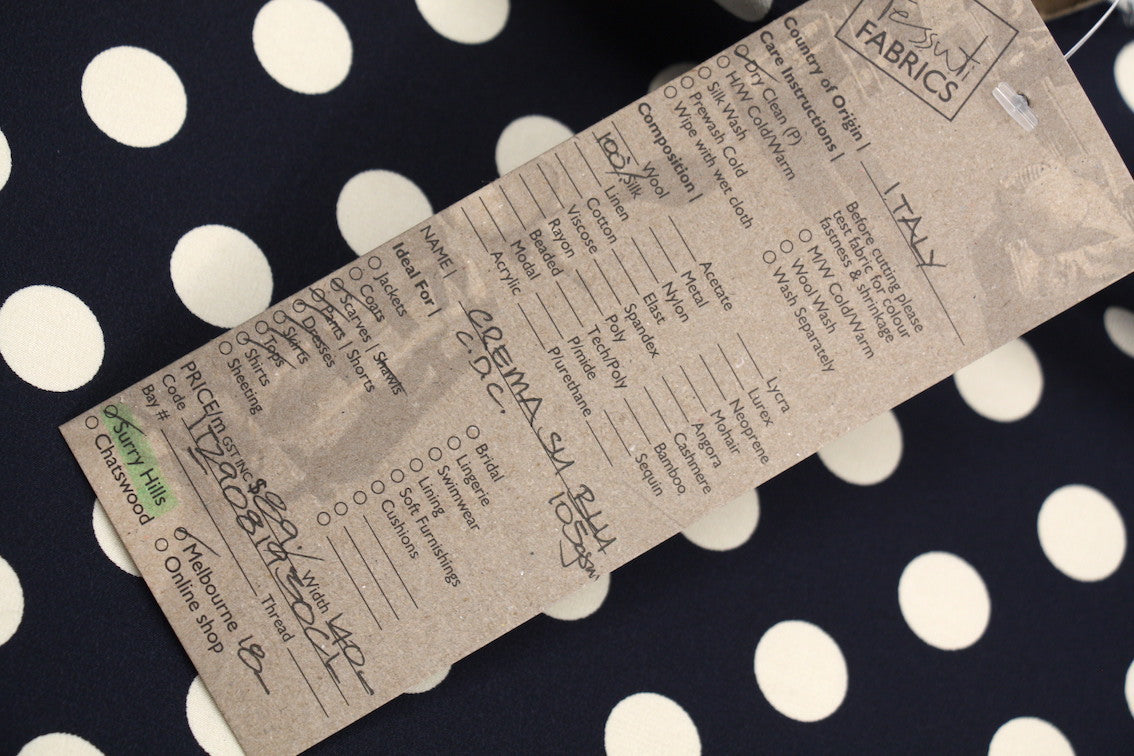 Tessuti
FABRICS
Country of Origin | ITALY
Care Instructions |
Dry Clean (P)
H/W Cold/Warm
Silk Wash
Prewash Cold
Wipe with wet cloth
Before cutting please
test fabric for colour
fastness & shrinkage
M/W Cold/Warm
Wool Wash
Wash Separately
Composition |
Wool
100% Silk
Linen
Cotton
Viscose
Rayon
Beaded
Modal
Acrylic
Acetate
Metal
Nylon
Elast
Spandex
Poly
Tech/Poly
P/mide
P/urethane
Lycra
Lurex
Neoprene
Mohair
Angora
Cashmere
Bamboo
Sequin
NAME | CREMA SU BLU
C.D.C. 105gsm
Ideal For |
Jackets
Coats
Scarves | Shawls
Pants | Shorts
Dresses
Skirts
Tops
Shirts
Sheeting
Bridal
Lingerie
Swimwear
Lining
Soft Furnishings
Cushions
PRICE/m GST INC $89. Width 140
Code
Bay #
Thread
Surry Hills
Chatswood
Melbourne 18
Online shop